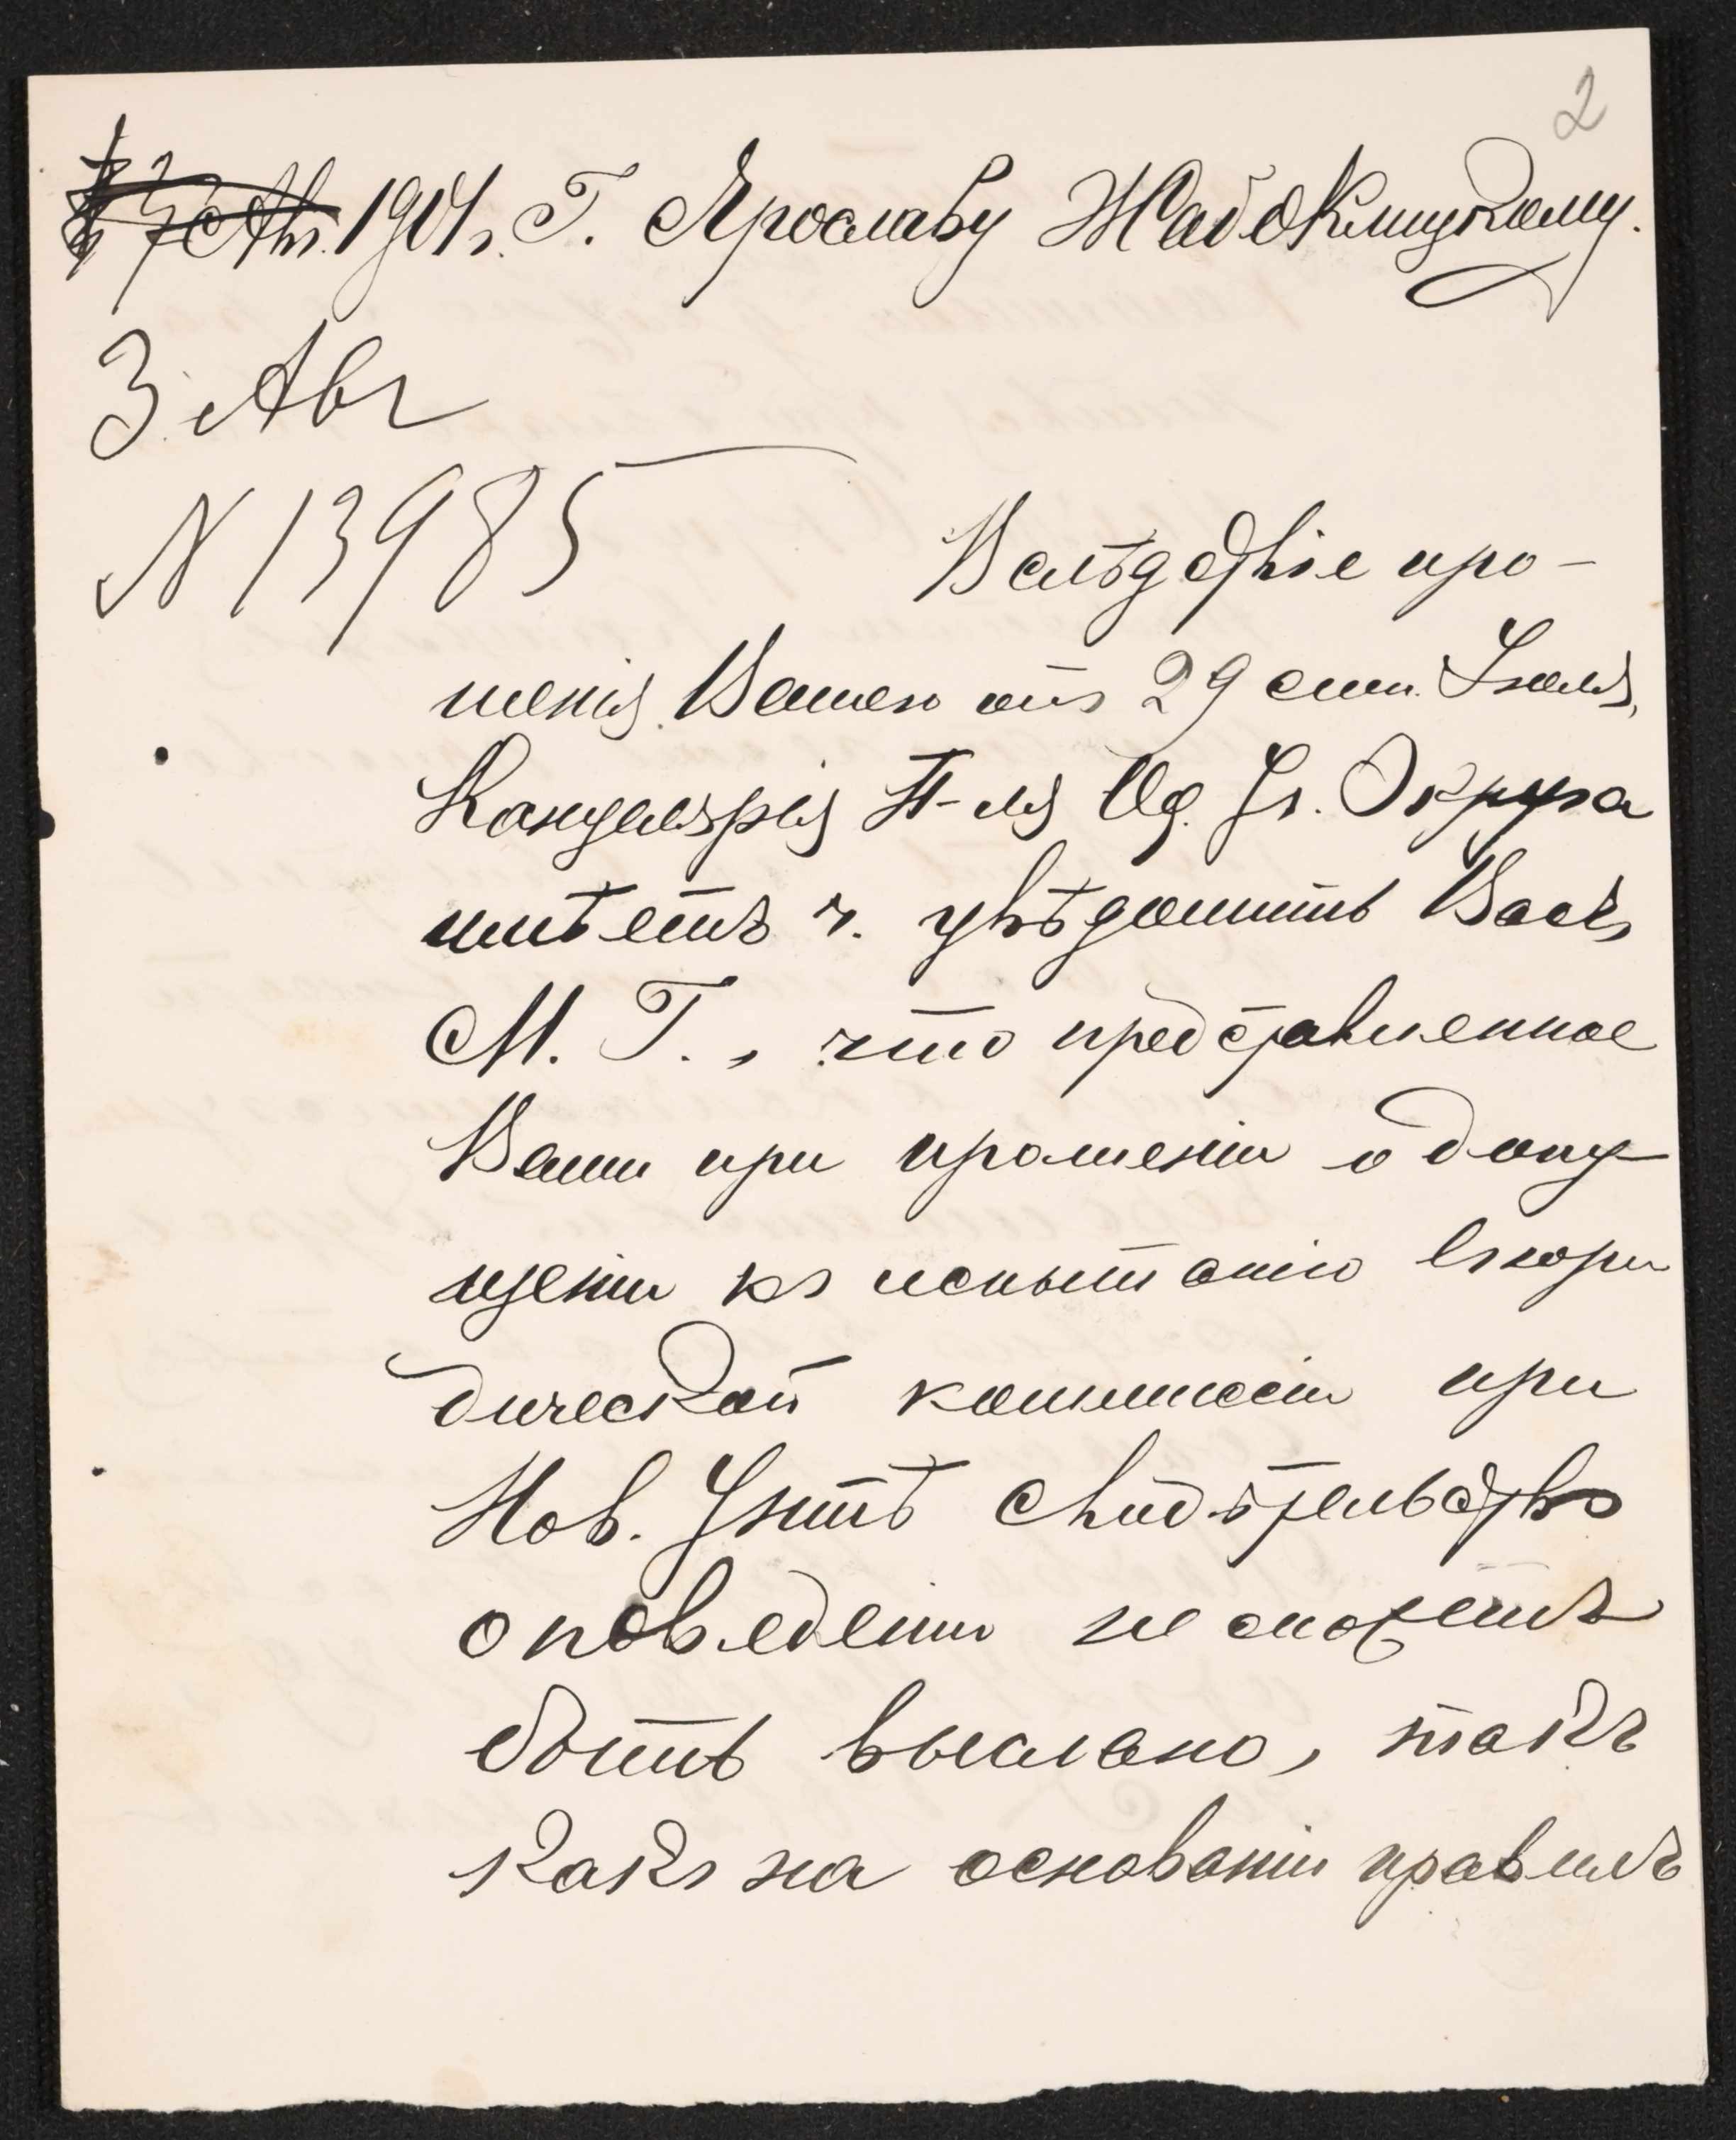 2
1904 г. Г. Ярославу Жабоклицкому.
3 Авг
N 13985
Вслѣдствіе про-
шенія Вашего отъ 29 сего Іюля,
Канцелярія П-ля Од. Уч. Округа
имѣетъ ч. увѣдомить Васъ,
М. Г., что представленное
Вами при прошеніи о допу-
щеніи къ испытанію въ юри
дической коммиссіи при
Нов. Унтѣ свидѣтельство
о поведеніи не можетъ
быть выслано, такъ
какъ на основаніи правилъ